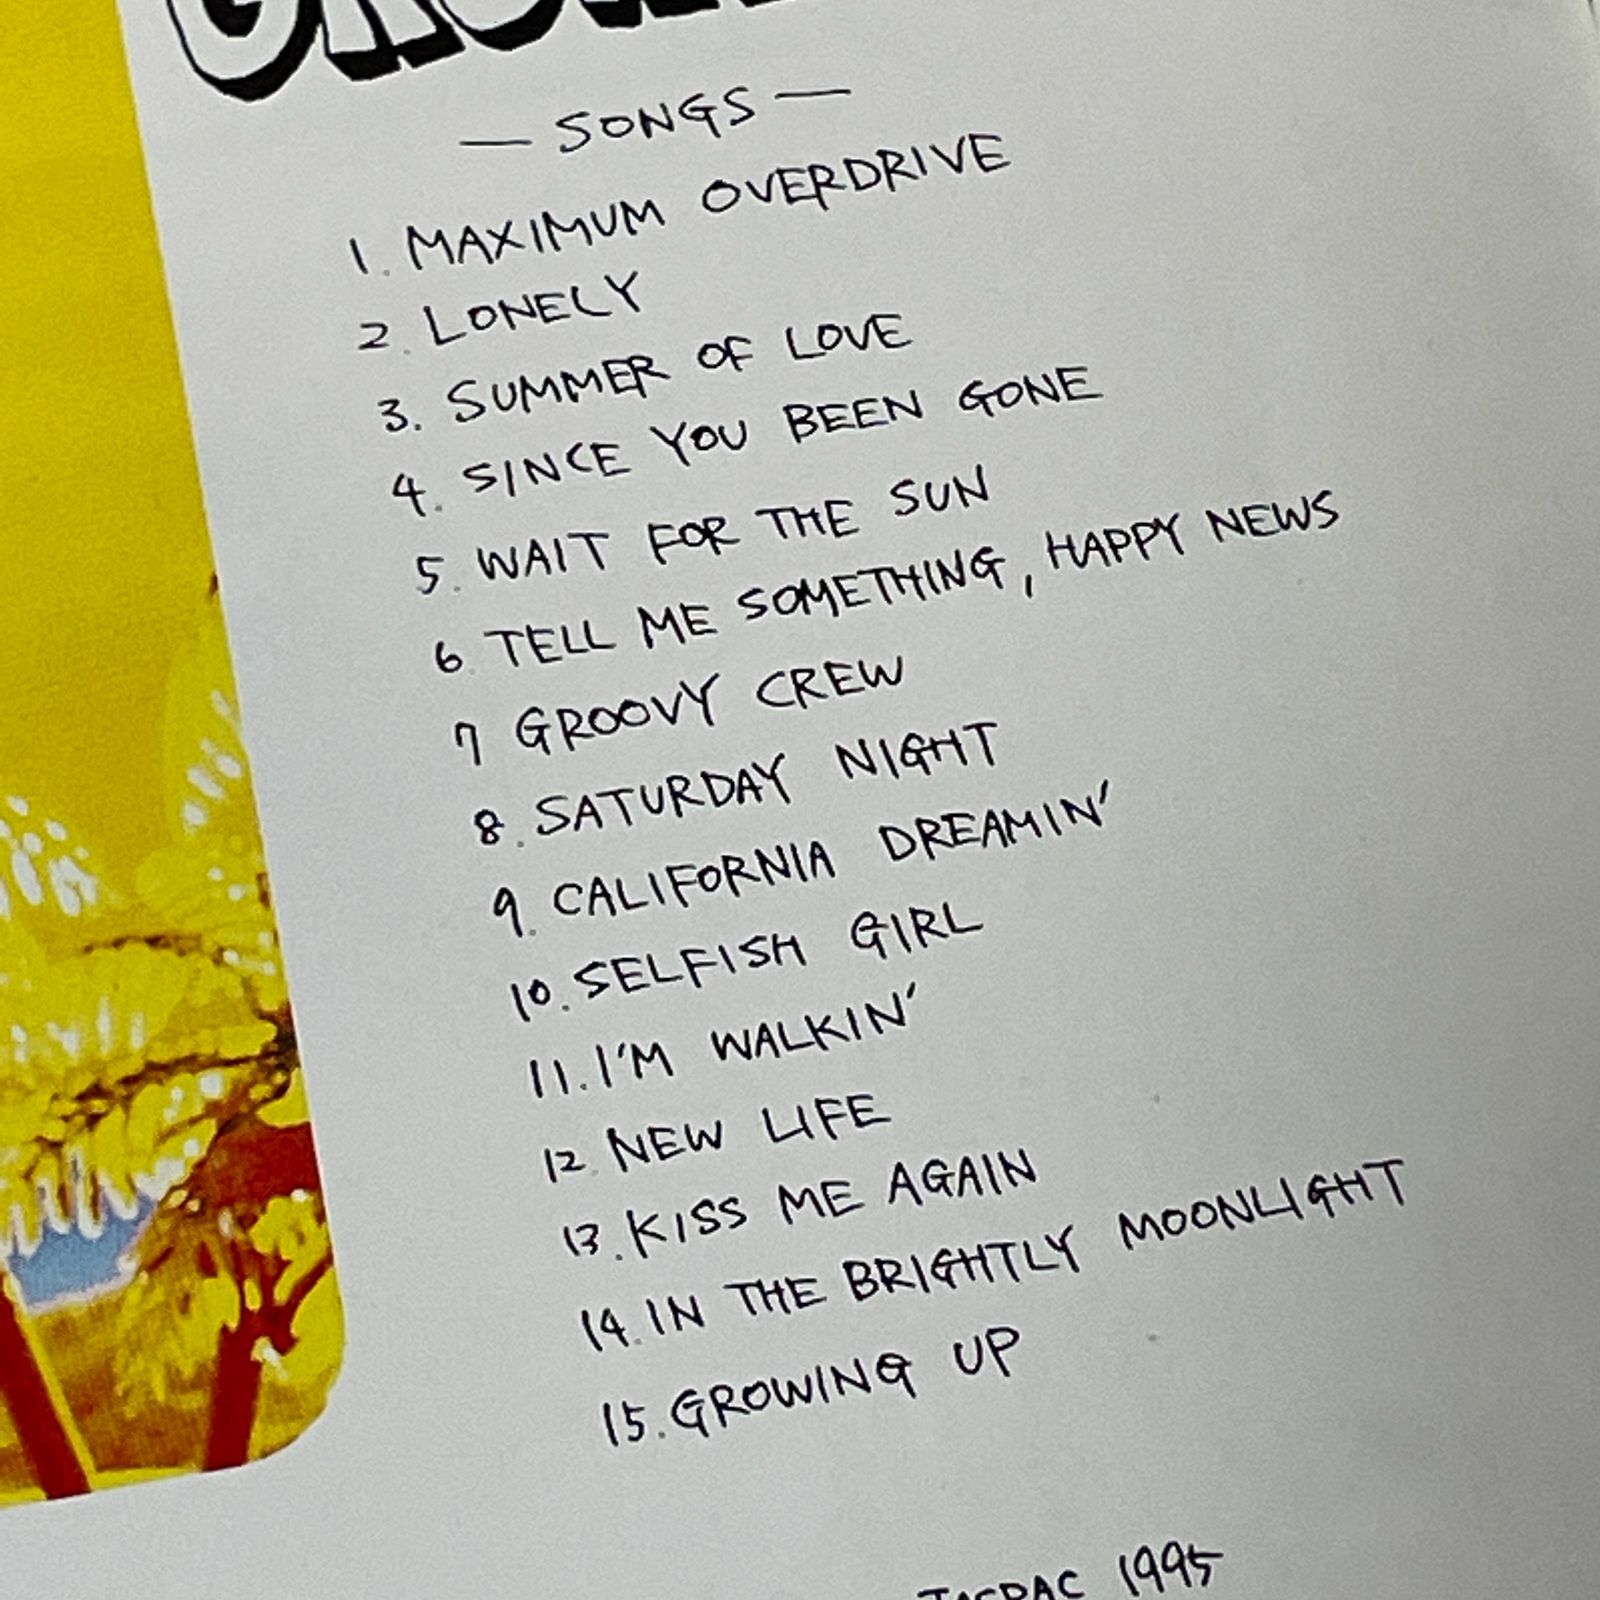 — SONGS —
1. MAXIMUM OVERDRIVE
2. LONELY
3. SUMMER OF LOVE
4. SINCE YOU BEEN GONE
5. WAIT FOR THE SUN
6. TELL ME SOMETHING, HAPPY NEWS
7 GROOVY CREW
8. SATURDAY NIGHT
9. CALIFORNIA DREAMIN'
10. SELFISH GIRL
11. I'M WALKIN'
12. NEW LIFE
13. KISS ME AGAIN
14. IN THE BRIGHTLY MOONLIGHT
15. GROWING UP
1995